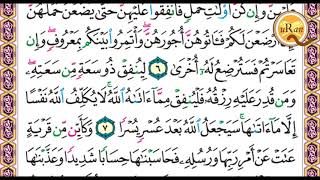 عَلَيْهِنَّ وَإِن كُنَّ أُولَٰتِ حَمْلٍ فَأَنفِقُوا۟ عَلَيْهِنَّ حَتَّىٰ يَضَعْنَ حَمْلَهُنَّ
أَرْضَعْنَ لَكُمْ فَـَٔاتُوهُنَّ أُجُورَهُنَّ وَأْتَمِرُوا۟ بَيْنَكُم بِمَعْرُوفٍ وَإِن
تَعَاسَرْتُمْ فَسَتُرْضِعُ لَهُۥٓ أُخْرَىٰ ٦ لِيُنفِقْ ذُو سَعَةٍ مِّن سَعَتِهِۦ
وَمَن قُدِرَ عَلَيْهِ رِزْقُهُۥ فَلْيُنفِقْ مِمَّآ ءَاتَىٰهُ ٱللَّهُ لَا يُكَلِّفُ ٱللَّهُ نَفْسًا
إِلَّا مَآ ءَاتَىٰهَا سَيَجْعَلُ ٱللَّهُ بَعْدَ عُسْرٍ يُسْرًا ٧ وَكَأَيِّن مِّن قَرْيَةٍ
عَتَتْ عَنْ أَمْرِ رَبِّهَا وَرُسُلِهِۦ فَحَاسَبْنَٰهَا حِسَابًا شَدِيدًا وَعَذَّبْنَٰهَا
uRan